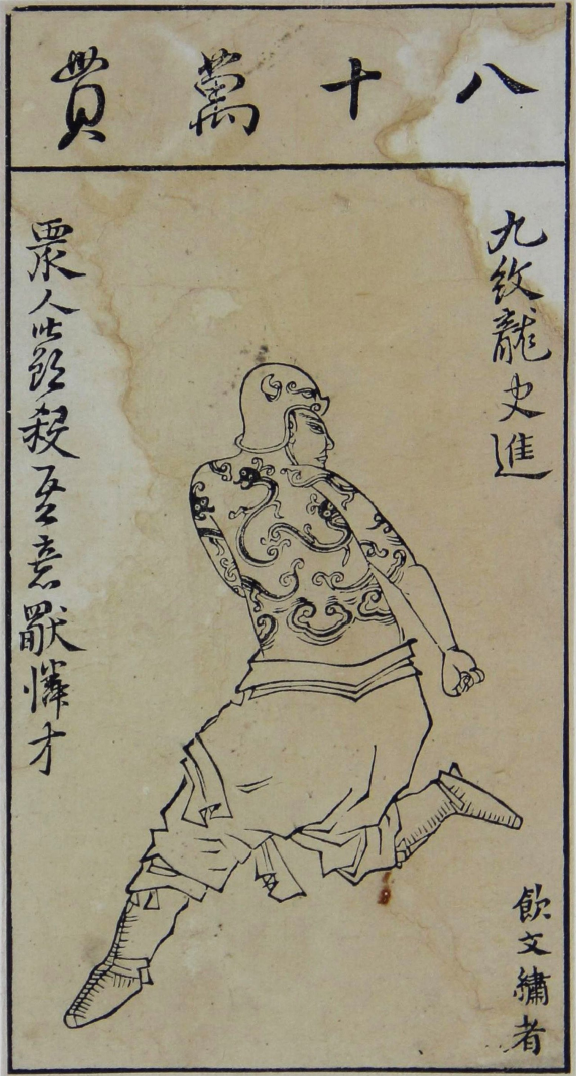 八十萬貫
九紋龍史進
飲文繡者
眾人皆欲殺吾意獨憐才